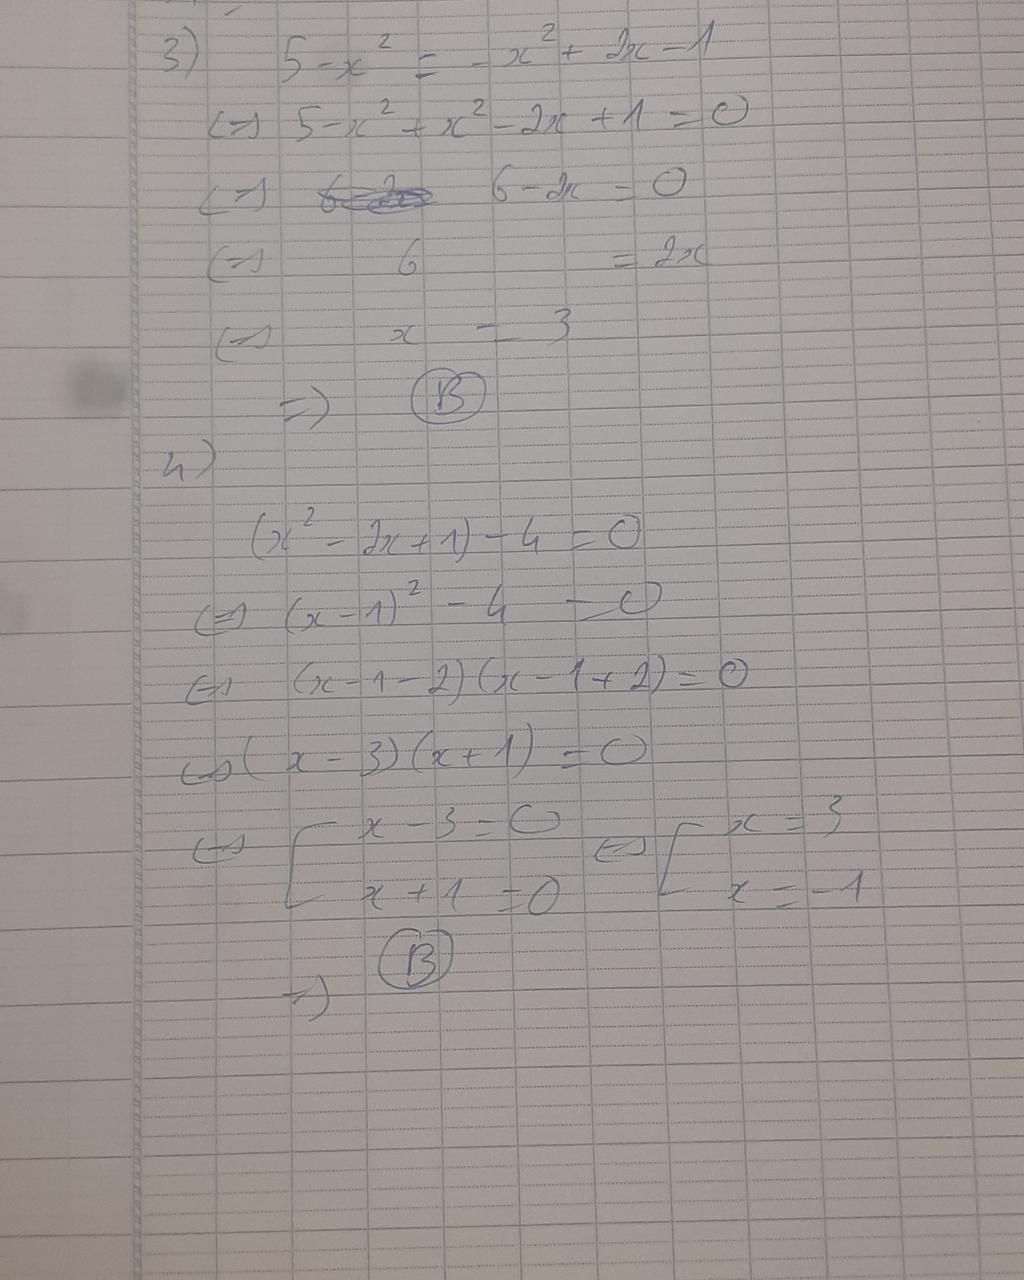 3) 5 - x² = -x² + 2x - 1
<=> 5 - x² + x² - 2x + 1 = 0
<=> 6 - 2x = 0
<=> 6 = 2x
<=> x = 3
=> B
4)
(x² - 2x + 1) - 4 = 0
<=> (x - 1)² - 4 = 0
<=> (x - 1 - 2)(x - 1 + 2) = 0
<=> (x - 3)(x + 1) = 0
<=> [ x - 3 = 0 <=> [ x = 3
x + 1 = 0 x = -1
=> B